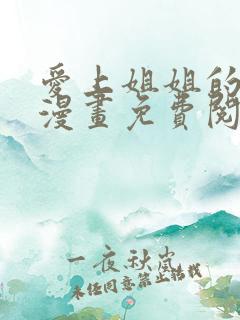 愛上姐姐的
漫畫免費閱
一夜秋嵐
未經同意禁止轉載